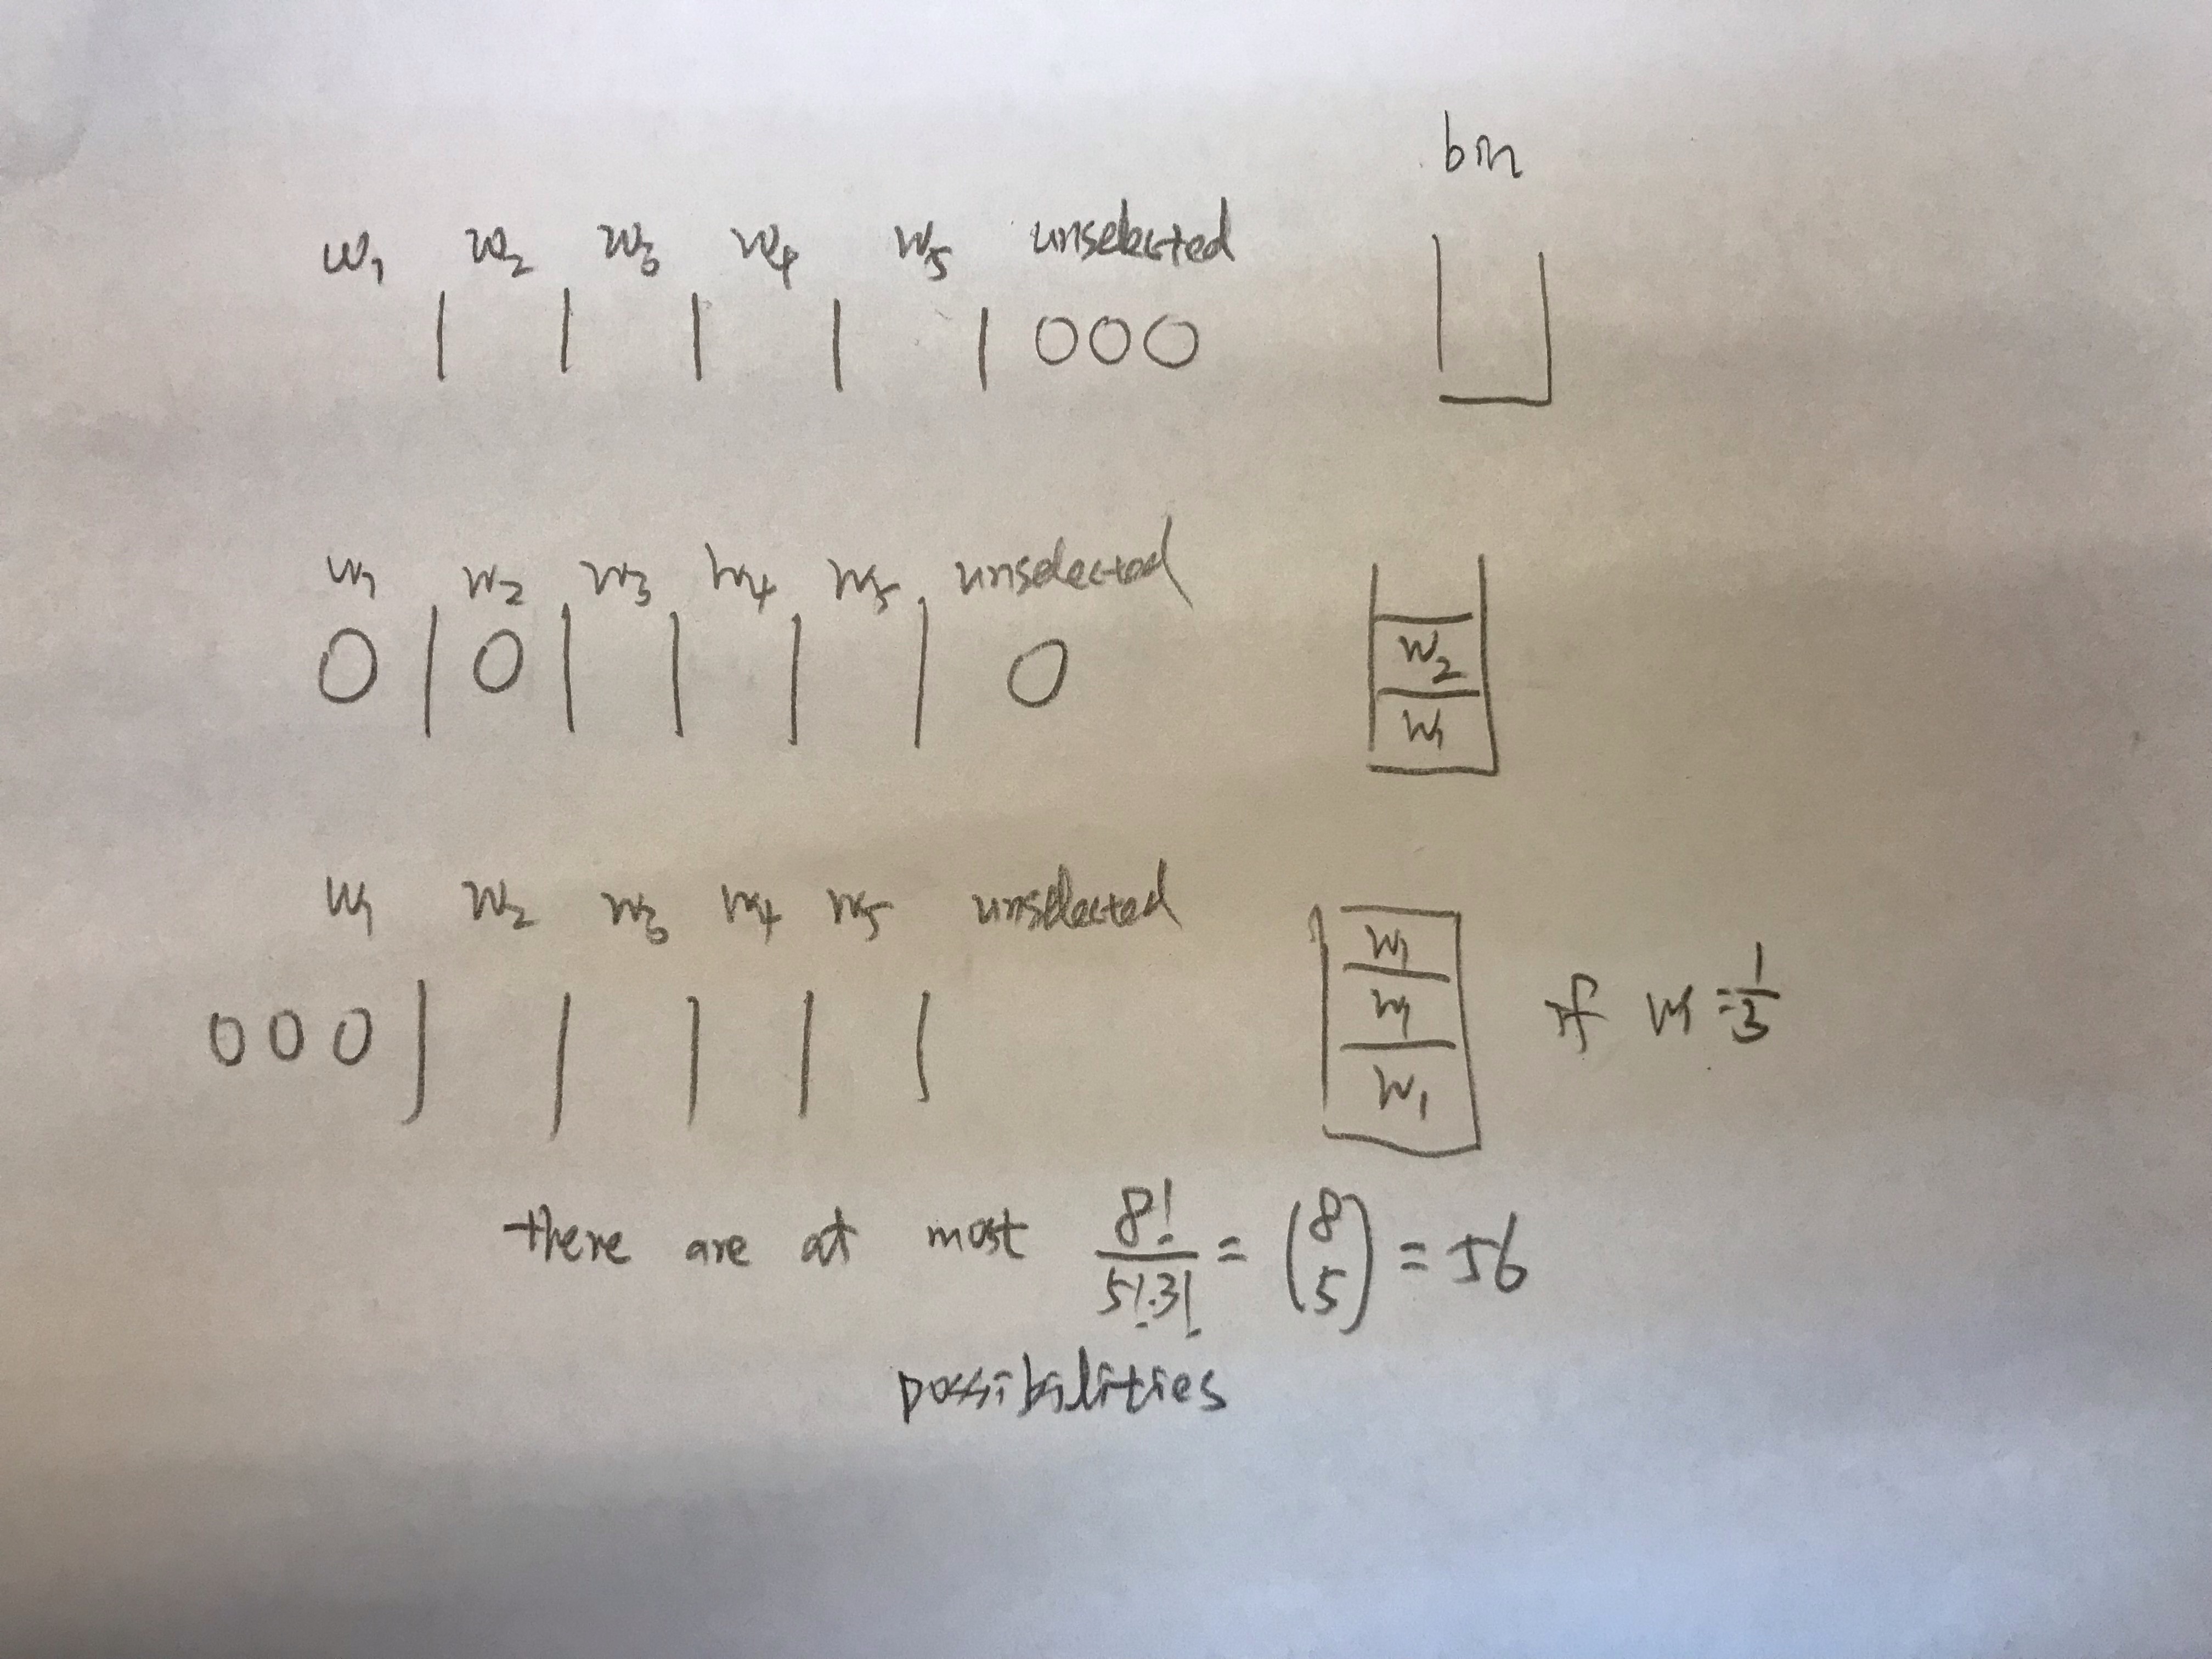 w₁ w₂ w₃ w₄ w₅ unselected bin
| | | | | 000
w₁ w₂ w₃ w₄ w₅ unselected
0 | 0 | | | | 0
w₂
w₁
w₁ w₂ w₃ w₄ w₅ unselected
000 | | | | |
w₁
w₁
w₁
if w = 1/3
there are at most 8!/(5!·3!) = (8 5) = 56
possibilities